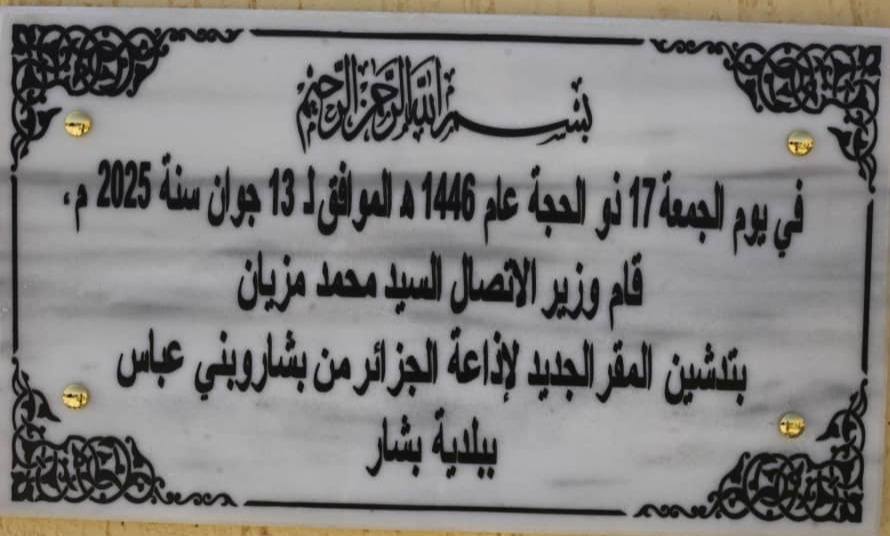 بسم الله الرحمن الرحيم
في يوم الجمعة 17 ذو الحجة عام 1446 ه الموافق لـ 13 جوان سنة 2025 م،
قام وزير الاتصال السيد محمد مزيان
بتدشين المقر الجديد لإذاعة الجزائر من بشار وبني عباس
ببلدية بشار